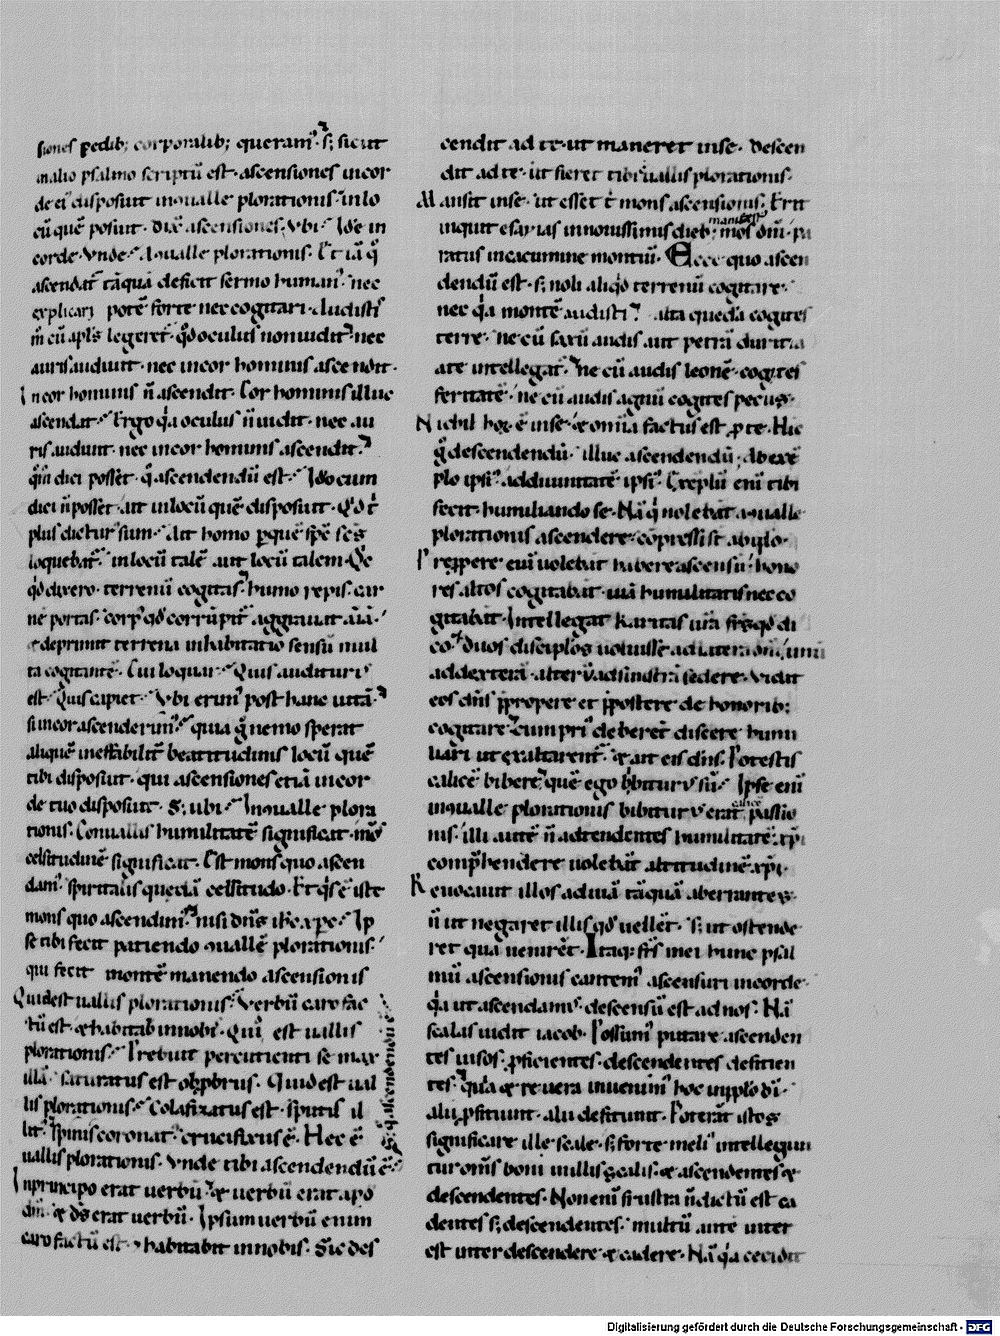 siones pedib; corporalib; queram'. s; sicut
inalio psalmo scriptū est. ascensiones incor
de ei' disposuit inualle plorationis. inlo
cū quē posuit. Dix̄ ascensiones. Vbi. Jde in
corde. Vnde. Aualle plorationis. Et iā q̊
ascendat tāqua deficit sermo human'. nec
explicari potē forte nec cogitari. Audistis
m̄ cū apl's legeret. qd̊ oculus nonuidit. nec
auris audiuit. nec incor hominis ascendit.
Jncor hominis n̄ ascendit. Cor hominis illuc
ascendat. Ergo q̇a oculus n̄ uidit. nec au
ris audiuit. nec incor hominis ascendit.
qm̊ dici posset. q̊ ascendendū est. Jdo cum
dici n̄ posset. ait inlocū quē disposuit. Qd̊ ē
plus dictur' sum. Ait homo p̱quē sp̄c sc̄s
loquebat'. inlocū talē aut locū talem. Qc̄
qd̊ dixero. terrenū cogitas. humo repis. car
nē portas. corp' qd̊ corrūpit' aggrauat aīā.
& deprimit terrena inhabitatio sensū mul
ta cogitantē. Cui loquar. Quis auditur'
est. Quis capiet. Vbi erim' post hanc uitā.
si incor ascenderim'. quia g̊ nemo sperat
aliquē ineffabilit' beatitudinis locū quē
tibi disposuit. qui ascensiones etiā incor
de tuo disposuit. S; ubi. Jnualle plora
tionis. Conuallis humilitatē significat. mōs
celsitudinē significat. Est mons quo ascen
dam'. spiritalis quedā celsitudo. Et q̇s ē iste
mons quo ascendim'. nisi dn̄s ih̄c xp̄c. Jp
se tibi fecit patiendo uallē plorationis.
qui fecit montē manendo ascensionis
Quid est uallis plorationis. Verbū caro fac
tū est. & habitab innobi. Qui' est uallis
plorationis. Prebuit percutienti se max
illā. saturatus est obp̱briis. Quid est ual
lis plorationis. Colafizatus est. sputis il
lit'. spinis coronat'. crucifixus ē. Hec ē
uallis plorationis. Vnde tibi ascendendū ē.
s; q̊ ascendendū ē
Jnprincipo erat uerbū. & uerbū erat apd
dm̄. & dS̄ erat uerbū. Jpsum uerbū enim
caro factū est. & habitabit innobis. Sic des
cendit ad te. ut maneret inse. Descen
dit ad te. ut fieret tibi uallis plorationis.
Mansit inse. ut esset t' mons ascensionis. Erit
inquit esayias innouissimis dieb; manifest' mōs dn̄i. pa
ratus incacumine montiū. Ecce quo ascen
dendū est. s; noli aliqd̊ terrenū cogitare.
nec q̇a montē audisti. alta queda cogites
terre. ne cū saxū audis aut petrā duritia
ate intellegat'. ne cū audis leonē. cogites
feritatē. ne cū audis agnū cogites pecus.
Nichil hoȝ ē inse. & omīa factus est p̱ te. Hic
g̊ descendendū. illuc ascendendū. Ab exē
plo ipsi'. addiuinitatē ipsi'. Exeplū eni tibi
fecit humiliando se. Nā q̇ nolebāt aualle
plorationis ascendere. cōpressi st̄ abipso.
P̱reppere eni uolebāt habere ascensū. hono
res altos cogitabāt. uiā humilitatis nec co
gitabāt. Jntellegat karitas urā frs qd̊ di
co. duos discipl'os uoluisse ad latera dn̄i. unū
addexterā. alter ū adsinistrā sedere. Vidit
eos dn̄s p̱propere et p̱postere de honorib;
cogitare. cum pri' deberēt discere humi
liari ut exaltarent'. & ait eis dn̄s. Potestis
calicē bibere quē ego bibitur' sū. Jpse eni
inqualle plorationis bibitur' erat calicē passio
nis. illi autē n̄ adtendentes humilitatē xp̄i.
comp̱hendere uolebāt altitudinē xp̄i.
Reuocauit illos aduiā tāquā aberrantes.
n̄ ut negaret illis qd̊ uellēt. s; ut ostende
ret qua uenirēt. Jtaq; frs mei hunc psal
mū ascensionis cantem' ascensuri incorde.
q̇a ut ascendam'. descensū est ad nos. Nā
scalas uidit iacob. Possum' putare ascenden
tes uisos. p̱ficientes. descendentes deficien
tes. quia & reuera inuenim' hoc inpplo dī.
alii p̱fitiunt. alii defitiunt. Poterāt istos
significare ille scale. s; forte meli' intellegun
tur om̄s boni inillis scalis. & ascendentes &
descendentes. Non eni frustra n̄ dictū est ca
dentes s; descendentes. multū autē inter
est inter descendere & cadere. Nā q̇a cecidit
Digitalisierung gefördert durch die Deutsche Forschungsgemeinschaft - DFG